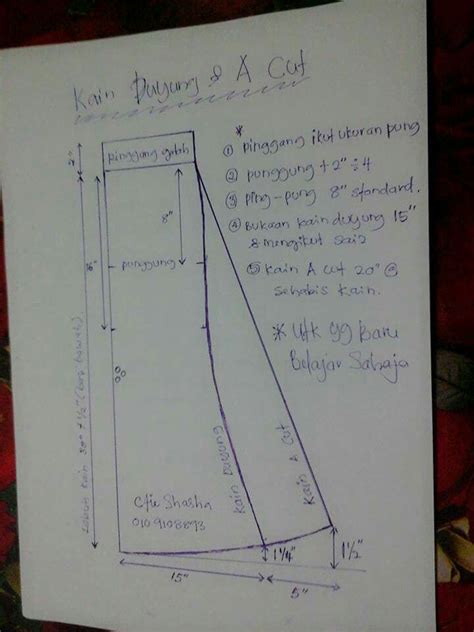 Kain Duyung & A Cut
*
① pinggang ikut ukuran pung
② punggung + 2" ÷ 4
③ ping-pung 8" standard.
④ Bukaan kain duyung 15"
& mengikut saiz
⑤ Kain A cut 20" @
sehabis kain.
* Utk yg Baru
Belajar Sahaja
pinggang getah
2"
8"
punggung
Labuh kain 38" + 1/2" (
Kain Duyung
Kain A Cut
Cfie Shasha
0109108873
1 1/4"
1 1/2"
15"
5"